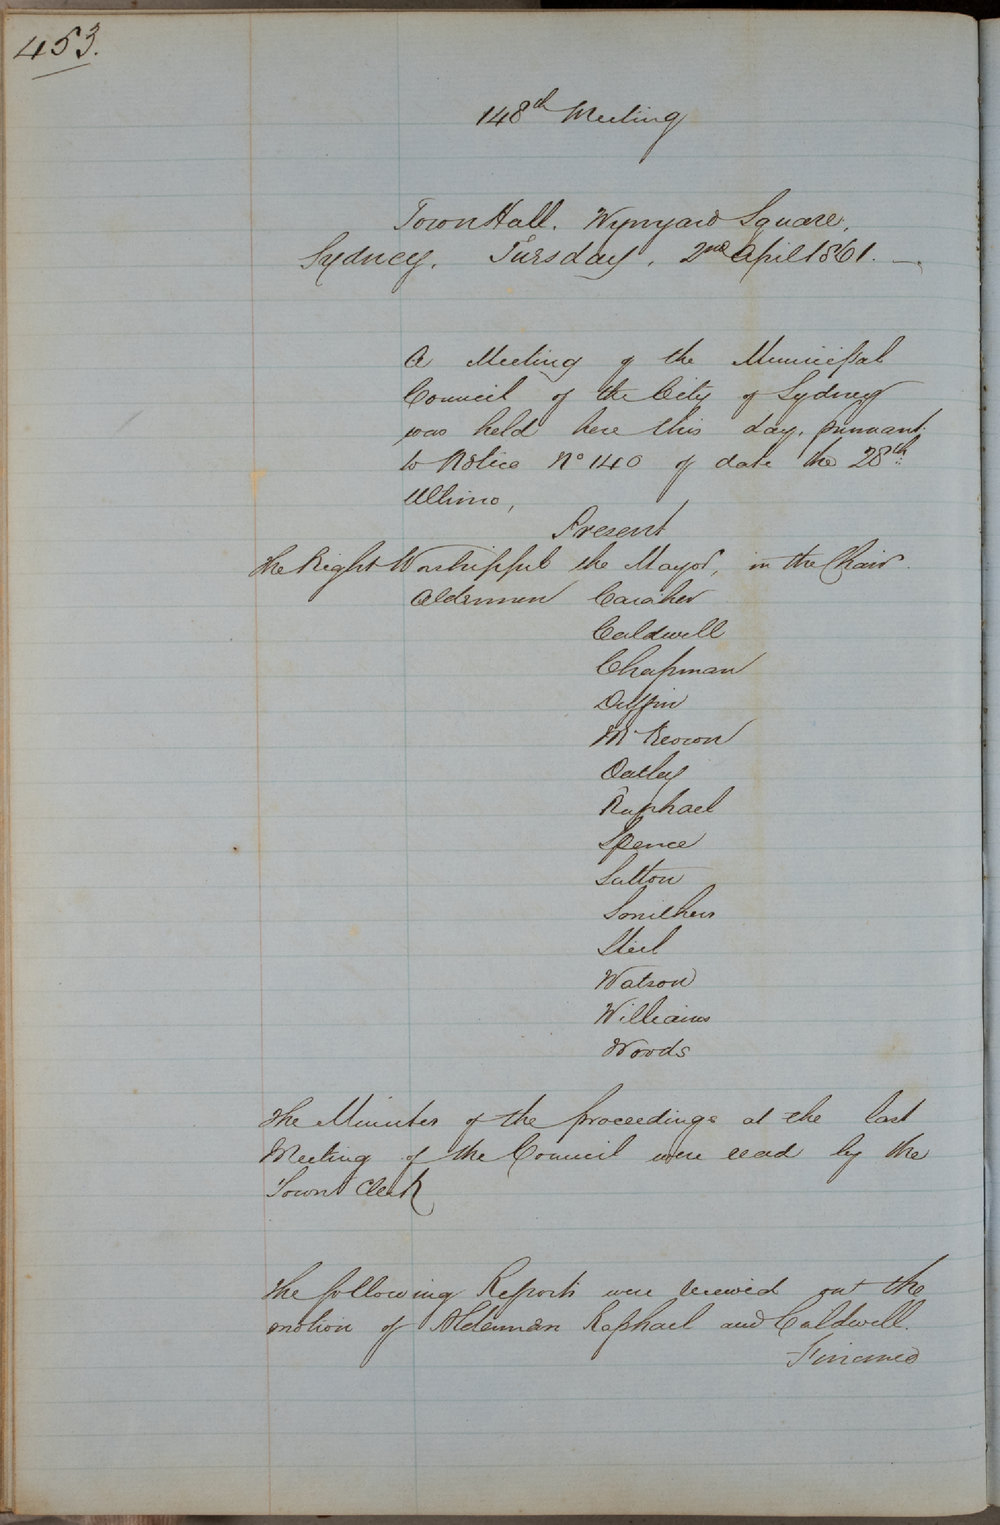 453.
148th Meeting
Town Hall. Wynyard Square,
Sydney. Tuesday, 2nd April 1861.
A Meeting of the Municipal
Council of the City of Sydney
was held here this day, pursuant
to Notice No 140 of date the 28th
Ultimo,
Present
The Right Worshipful the Mayor, in the Chair.
Aldermen Caraher
Caldwell
Chapman
Duffin
McKeown
Oatley
Raphael
Spence
Sutton
Smithers
Steel
Watson
Williams
Woods
The Minutes of the proceedings at the last
Meeting of the Council were read by the
Town Clerk
The following Reports were received on the
motion of Aldermen Raphael and Caldwell.
Finance